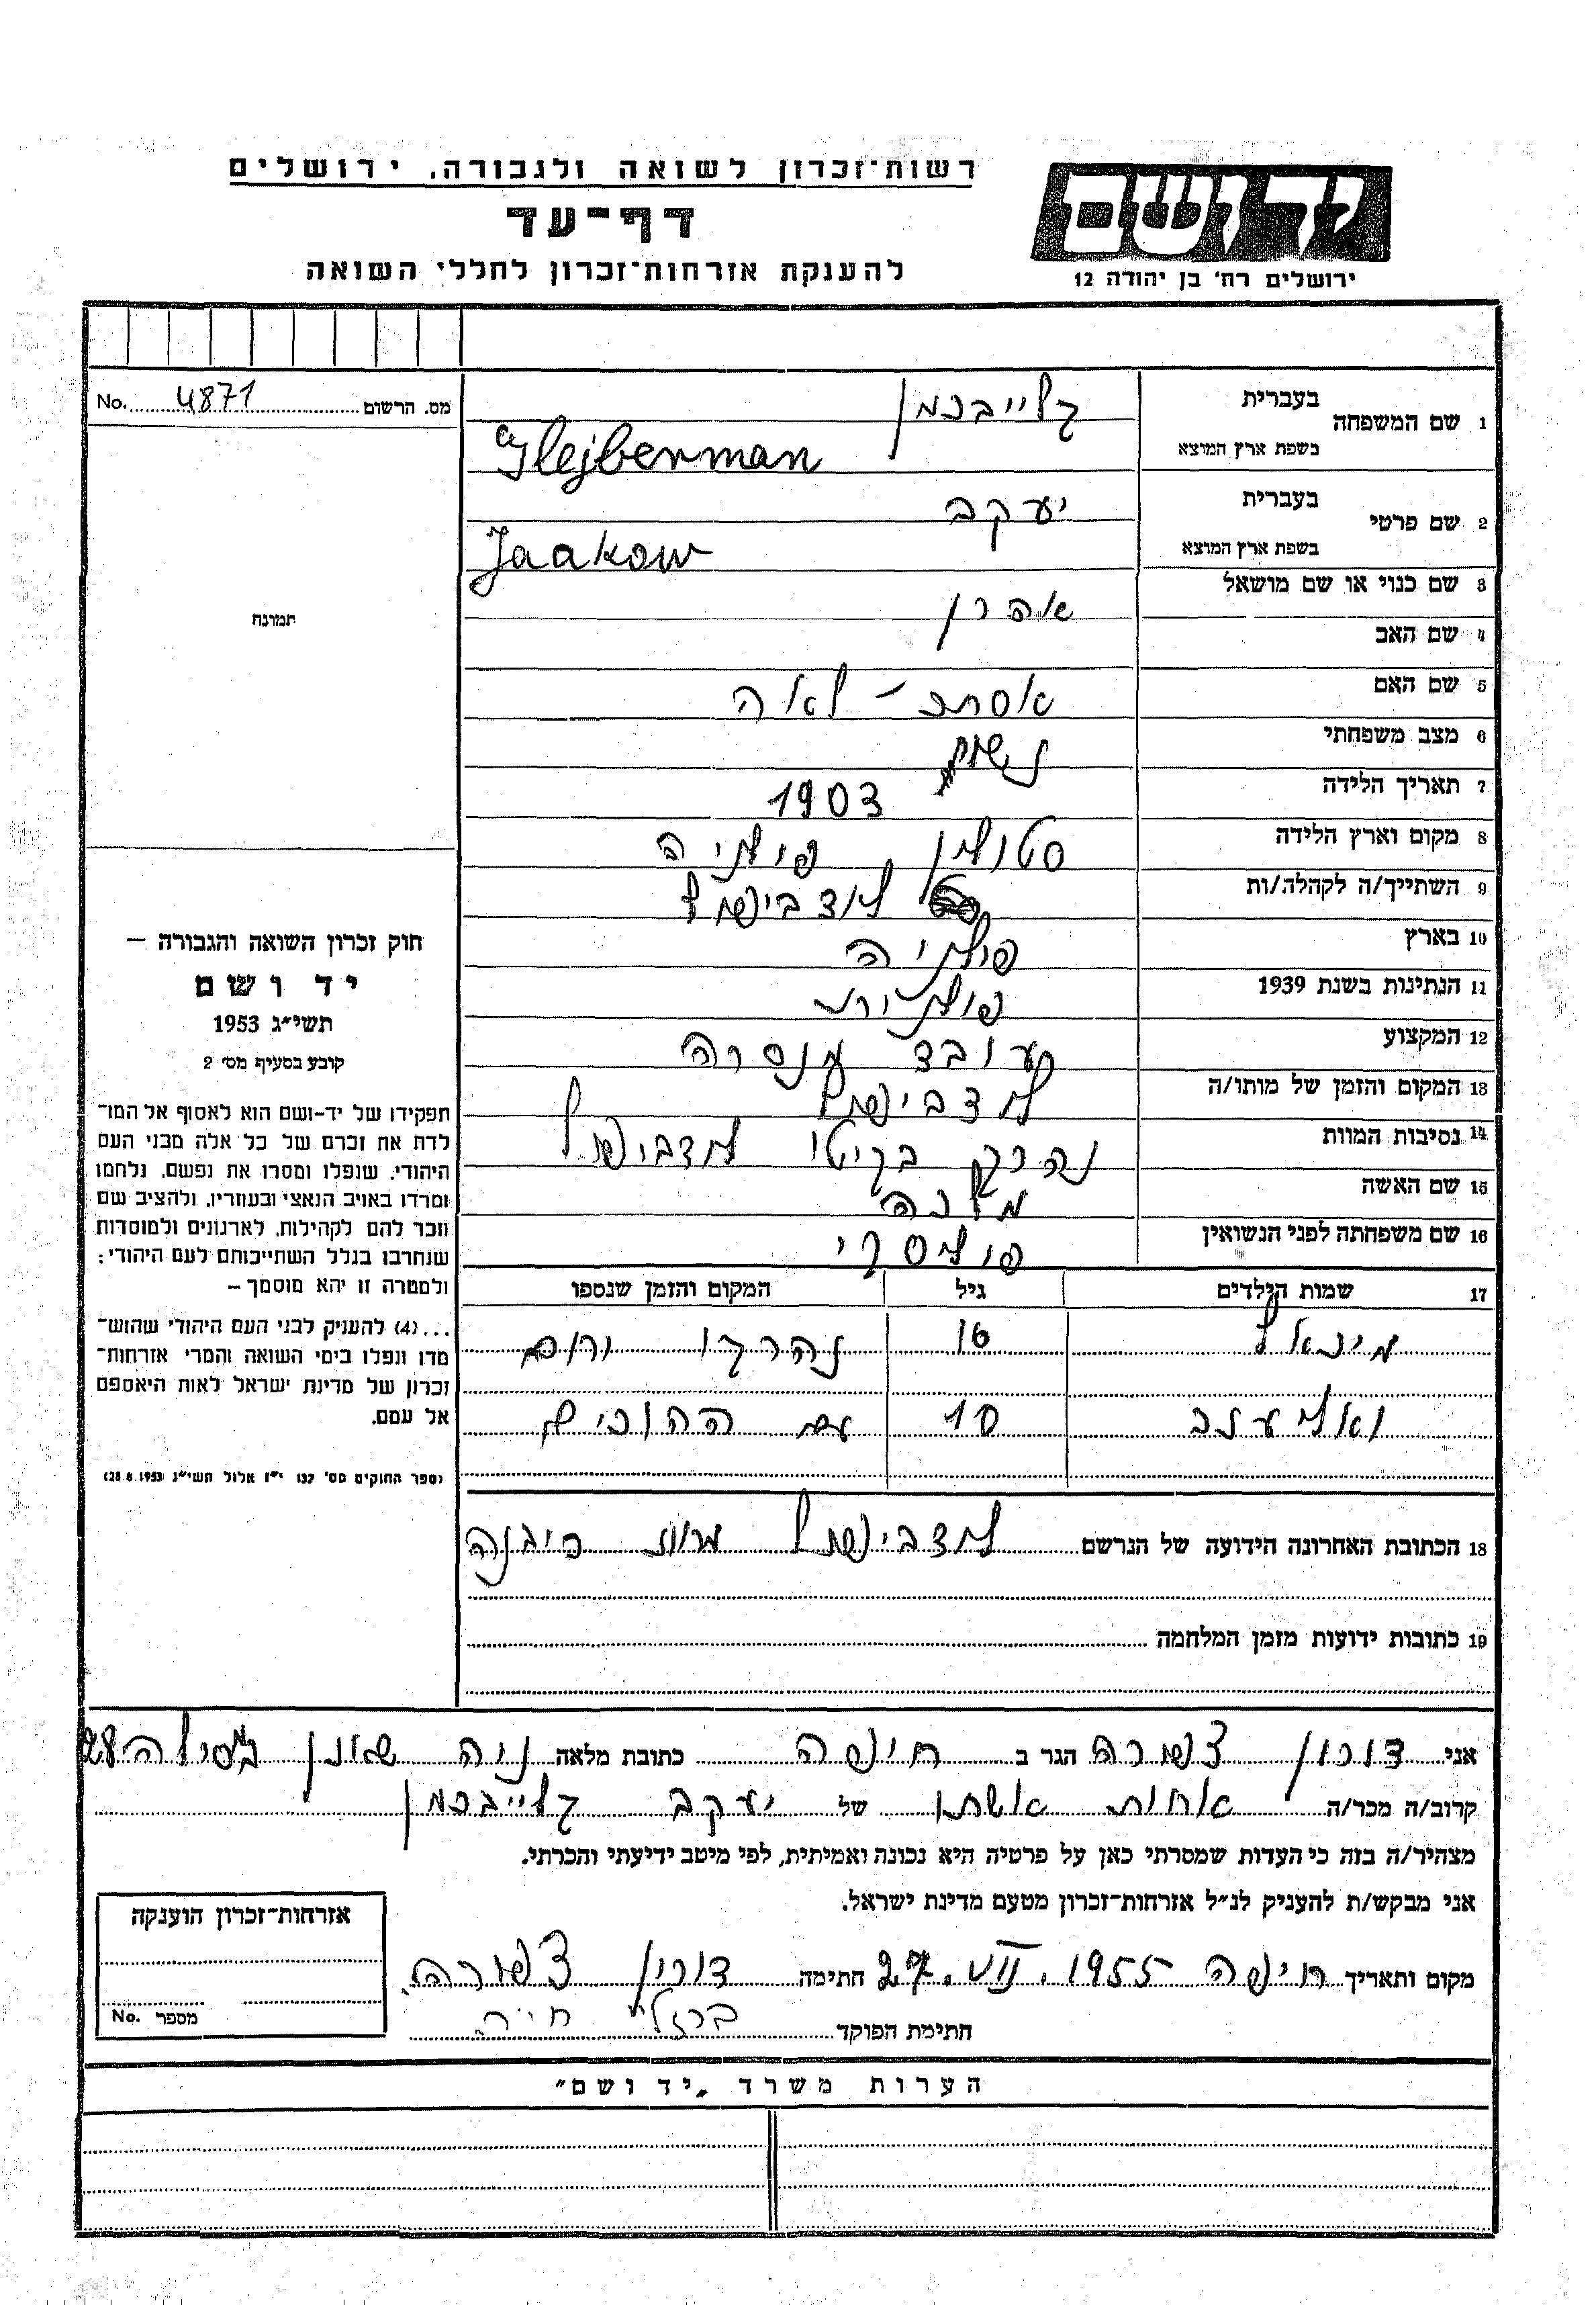 רשות־זכרון לשואה ולגבורה, ירושלים
דף־עד
להענקת אזרחות־זכרון לחללי השואה
יד ושם
ירושלים רח' בן יהודה 12
מס. הרשום 4871 No.
1 שם המשפחה בעברית קלייברמן
בשפת ארץ המוצא Glejberman
2 שם פרטי בעברית יעקב
בשפת ארץ המוצא Jaakow
3 שם כנוי או שם מושאל
אהרן
4 שם האב
5 שם האם אסתר - לאה
6 מצב משפחתי נשוי
7 תאריך הלידה 1903
8 מקום וארץ הלידה סטולין פולניה
9 השתייך/ה לקהלה/ות לודבישול
10 בארץ פולניה
11 הנתינות בשנת 1939 פולנית
12 המקצוע עובד מנסרה
13 המקום והזמן של מותו/ה לודבישול
14 נסיבות המוות נהרג בגיטו לודבישול
15 שם האשה מלכה
16 שם משפחתה לפני הנשואין פוליסקי
17 שמות הילדים גיל המקום והזמן שנספו
מיכאל 16 נהרגו ורם
ואליעזר 10 עם ההורים
18 הכתובת האחרונה הידועה של הנרשם לודבישול
19 כתובות ידועות מזמן המלחמה
תמונה
חוק זכרון השואה והגבורה –
יד ושם
תשי״ג 1953
קובע בסעיף מס׳ 2
תפקידו של יד-ושם הוא לאסוף אל המו־
לדת את זכרם של כל אלה מבני העם
היהודי, שנפלו ומסרו את נפשם, נלחמו
ומרדו באויב הנאצי ובעוזריו, ולהציב שם
וזכר להם לקהילות, לארגונים ולמוסדות
שנחרבו בגלל השתייכותם לעם היהודי:
ולמטרה זו יהא מוסמך –
...(4) להעניק לבני העם היהודי שהוש־
מדו ונפלו בימי השואה והמרי אזרחות־
זכרון של מדינת ישראל לאות היאספם
אל עמם.
(ספר החוקים מס׳ 132 י״ז אלול תשי״ג 28.8.1953)
אני דורון צפורה הגר ב חיפה כתובת מלאה נוה שאנן 28
קרוב/ה מכר/ה אחות אשתו של יעקב קלייברמן
מצהיר/ה בזה כי העדות שמסרתי כאן על פרטיה היא נכונה ואמיתית, לפי מיטב ידיעתי והכרתי.
אני מבקש/ת להעניק לנ״ל אזרחות־זכרון מטעם מדינת ישראל.
מקום ותאריך חיפה 27.VII.1955 חתימה דורון צפורה
חתימת הפוקד ברזלי חיה
אזרחות־זכרון הוענקה
מספר No.
הערות משרד „יד ושם״